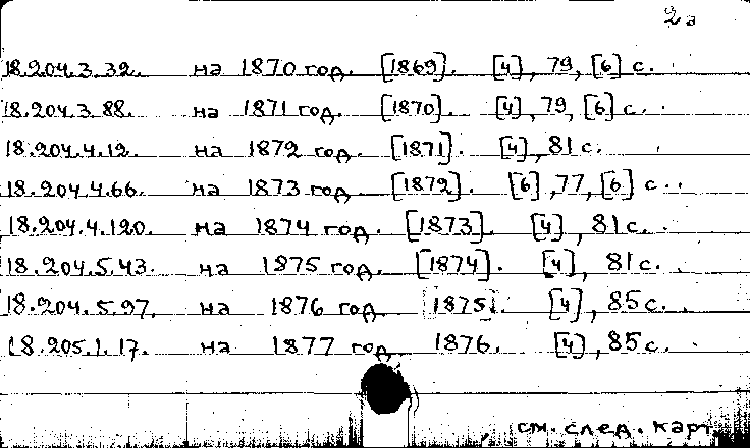 2а
18.204.3.32. на 1870 год. [1869]. [4], 79, [6] с.
18.204.3.88. на 1871 год. [1870]. [4], 79, [6] с.
18.204.4.12. на 1872 год. [1871]. [4], 81 с.
18.204.4.66. на 1873 год. [1872]. [6], 77, [6] с.
18.204.4.120. на 1874 год. [1873]. [4], 81 с.
18.204.5.43. на 1875 год. [1874]. [4], 81 с.
18.204.5.97. на 1876 год. [1875]. [4], 85 с.
18.205.1.17. на 1877 год. 1876. [4], 85 с.
см. след. карт.